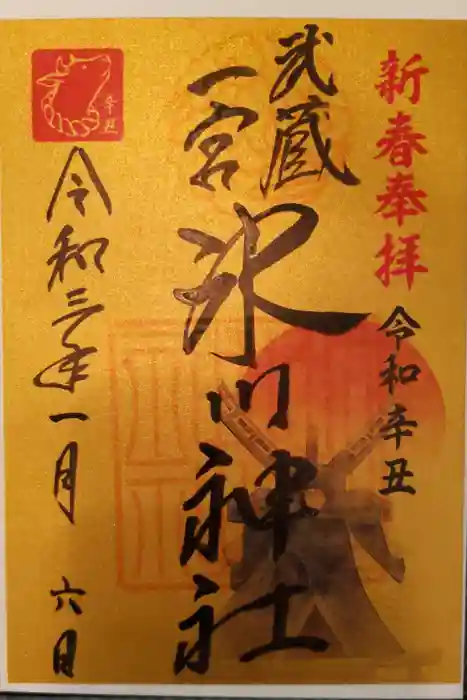 新春奉拝
令和辛丑
武蔵
一宮
氷川神社
辛丑
令和三年一月
六日